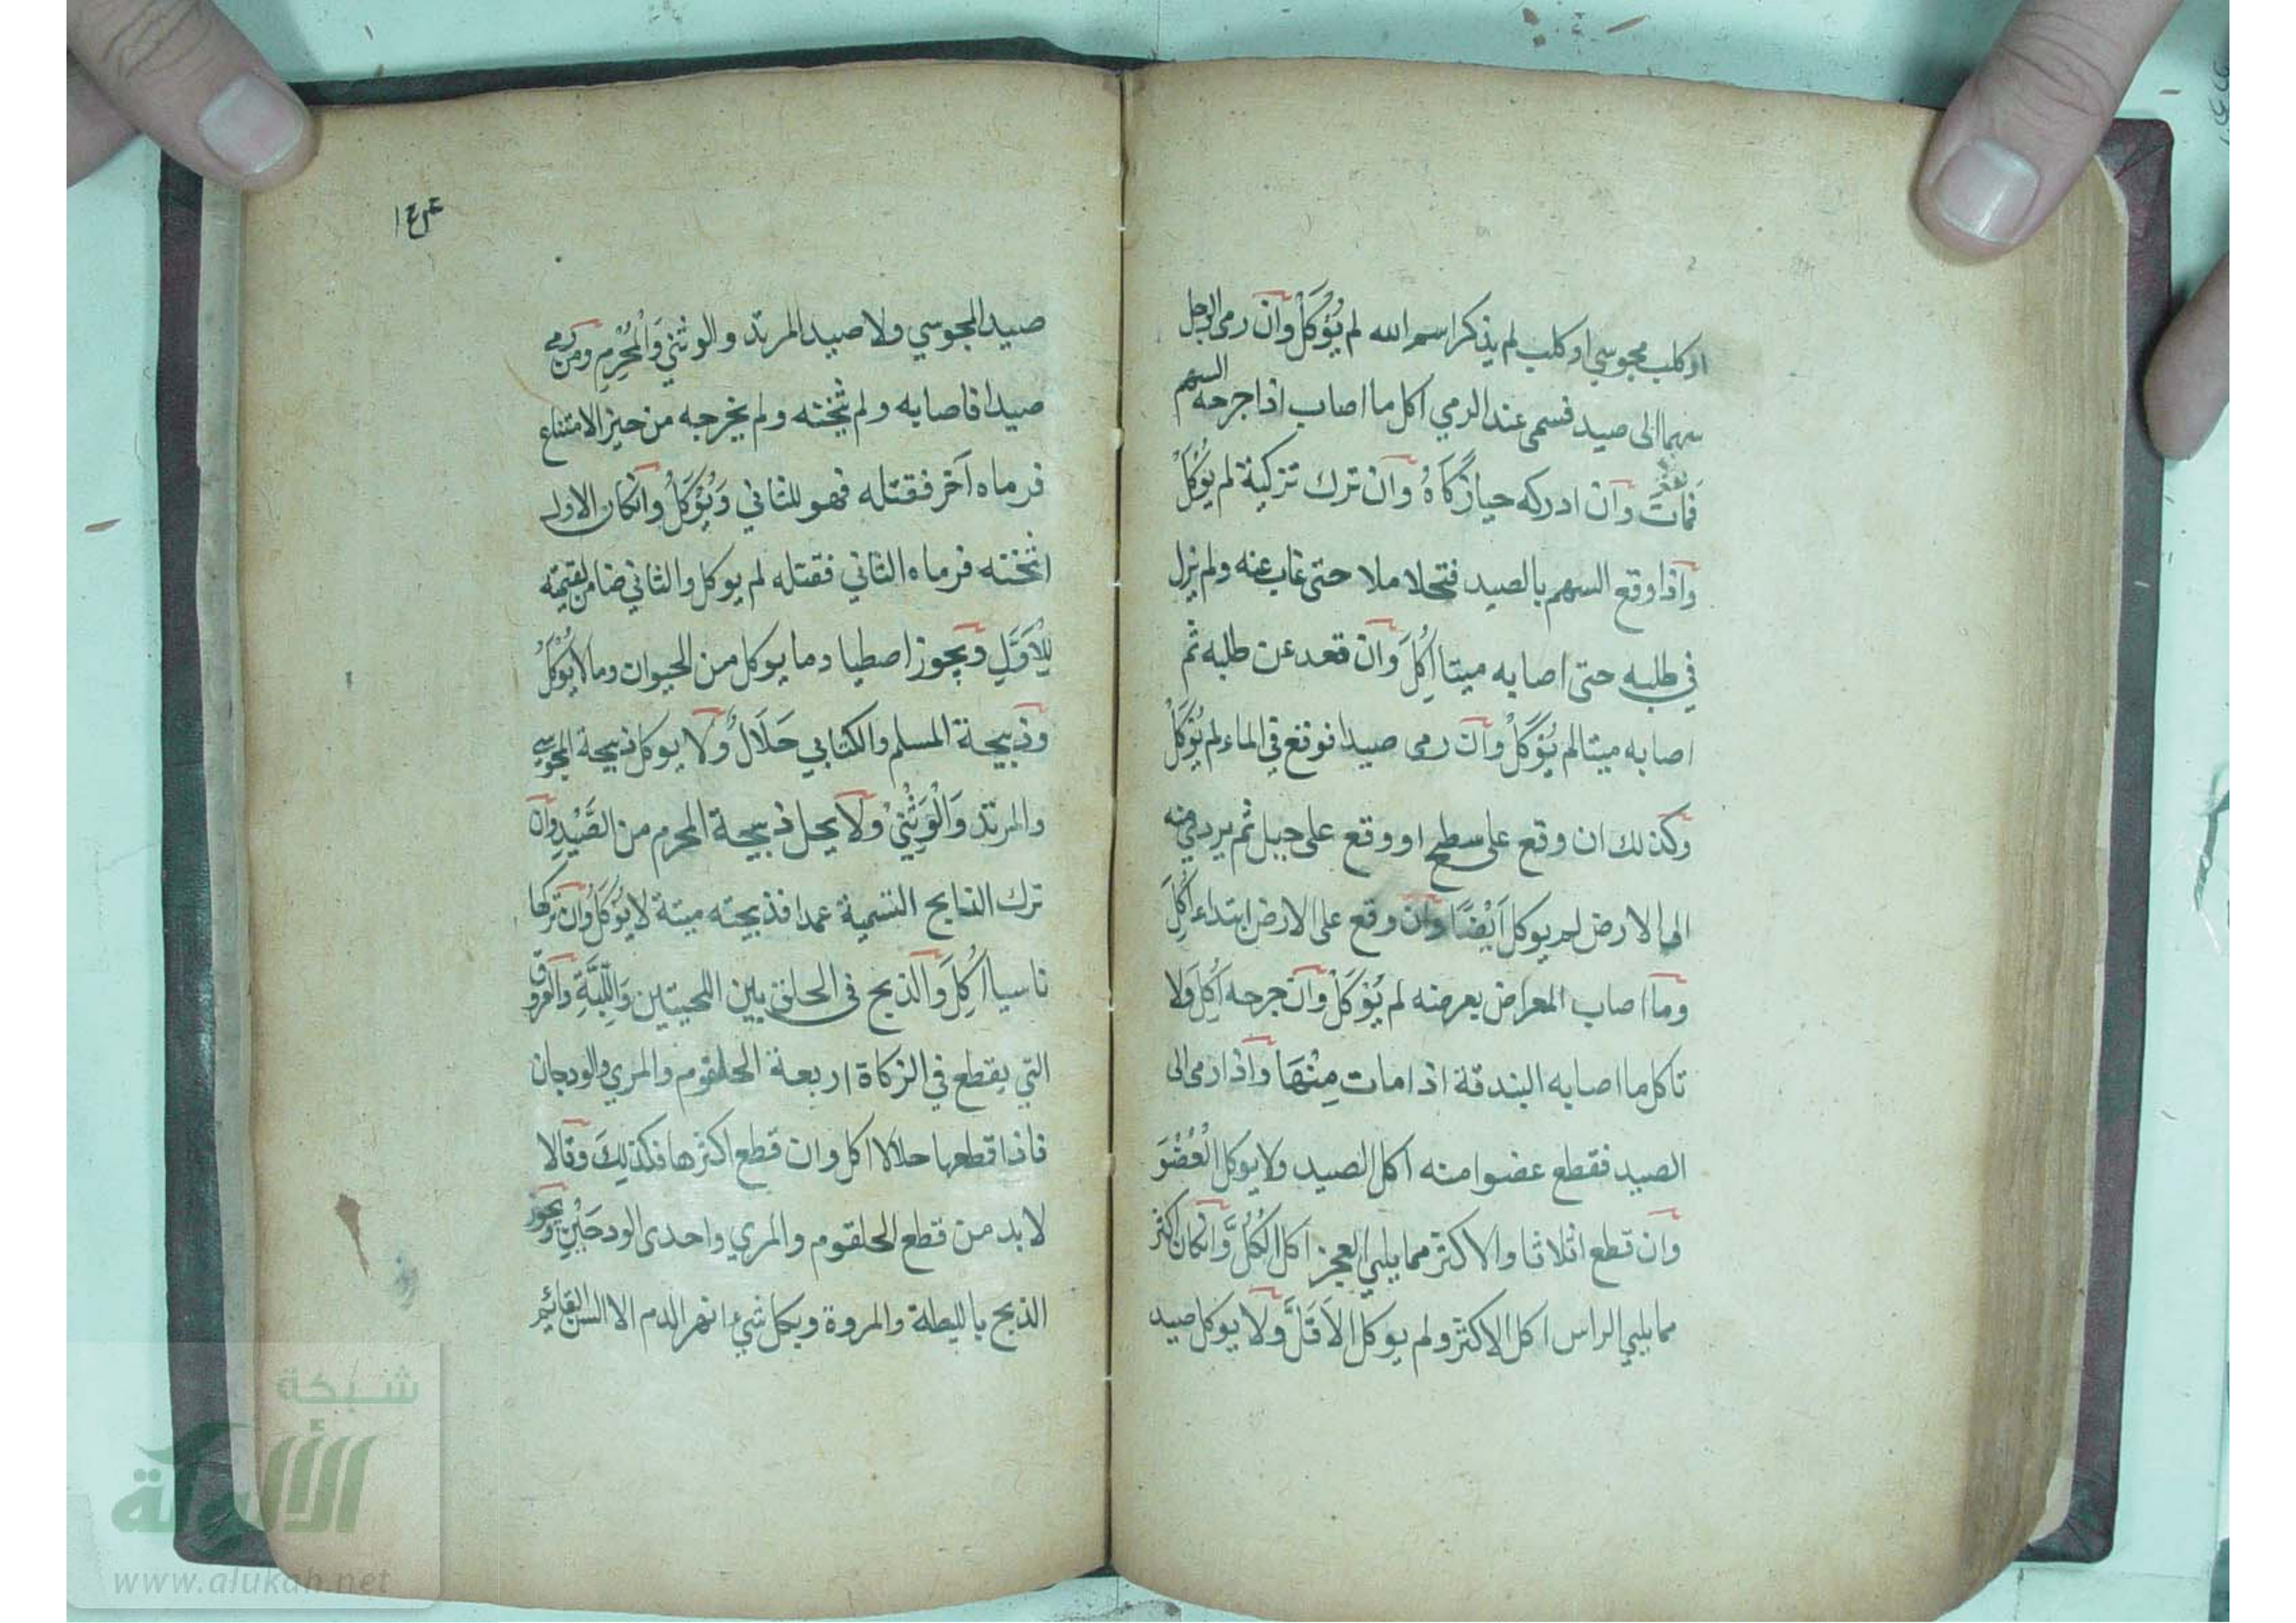 او كلب مجوسي او كلب لم يذكر اسم الله لم يُؤكَلْ وان رمى الرجل
سهما الى صيد فسمى عند الرمي اكل ما اصاب اذا جرحه السهم
فمَاتَ وان ادركه حيا زَكَاهُ وان ترك تزكية لم يُؤكَلْ
واذا وقع السهم بالصيد فتحلاملا حتى غاب عنه ولم يزل
في طلبه حتى اصابه ميتا اُكِلَ وان قعد عن طلبه ثم
اصابه ميتا لم يُؤكَلْ وان رمى صيدا فوقع في الماء لم يُؤكَلْ
وكذلك ان وقع على سطح او وقع على جبل ثم يردي منه
الى الارض لم يوكل اَيْضًا وان وقع على الارض ابتداء اُكِلَ
وما اصاب المعراض بعرضه لم يُؤكَلْ وان جرحه اُكِلَ وَلا
تاكل ما اصابه البندقة اذا مات مِنْهَا واذا رمى الى
الصيد فقطع عضوا منه اكل الصيد ولا يوكل الْعُضْوَ
وان قطع اثلاثا والاكثر مما يلي العجز اكل الكُلُّ وانكان اكثر
مما يلي الراس اكل الاكثر ولم يوكل الاَقَلَّ ولا يوكل صيد
صيد المجوسي ولا صيد المرتد والوثني وَالْمُحْرِمِ ومن رمى
صيدا فاصابه ولم يثخنه ولم يخرجه من حيز الامتناع
فرماه آخر فقتله فهو للثاني وَيُؤكَلُ وانكان الاول
اثخنه فرماه الثاني فقتله لم يوكل والثاني ضامن لقيمته
لِلْاَوَّلِ ويجوز اصطياد ما يوكل من الحيوان وما لا يُؤْكَلُ
وذبيحة المسلم والكتابي حَلَالٌ ولا يوكل ذبيحة المجوسي
والمرتد وَالْوَثَنِيْ ولا يحل ذبيحة المحرم من الصَّيْدِ وان
ترك الذابح التسمية عمدا فذبيحته ميتة لا يُؤكَلُ وان تركها
ناسيا اُكِلَ والذبح في الحلق بين اللحيتين وَاللَّبَّةِ والعروق
التي يقطع في الزكاة اربعة الحلقوم والمري والودجان
فاذا قطعها حلالا اكل وان قطع اكثرها فكذلِكَ وقالا
لا بد من قطع الحلقوم والمري واحدى الودجَيْنِ ويجوز
الذبح بالليطة والمروة وبكل شيء انهر الدم الا السن القائم
شبكة
الألوكة
www.alukah.net